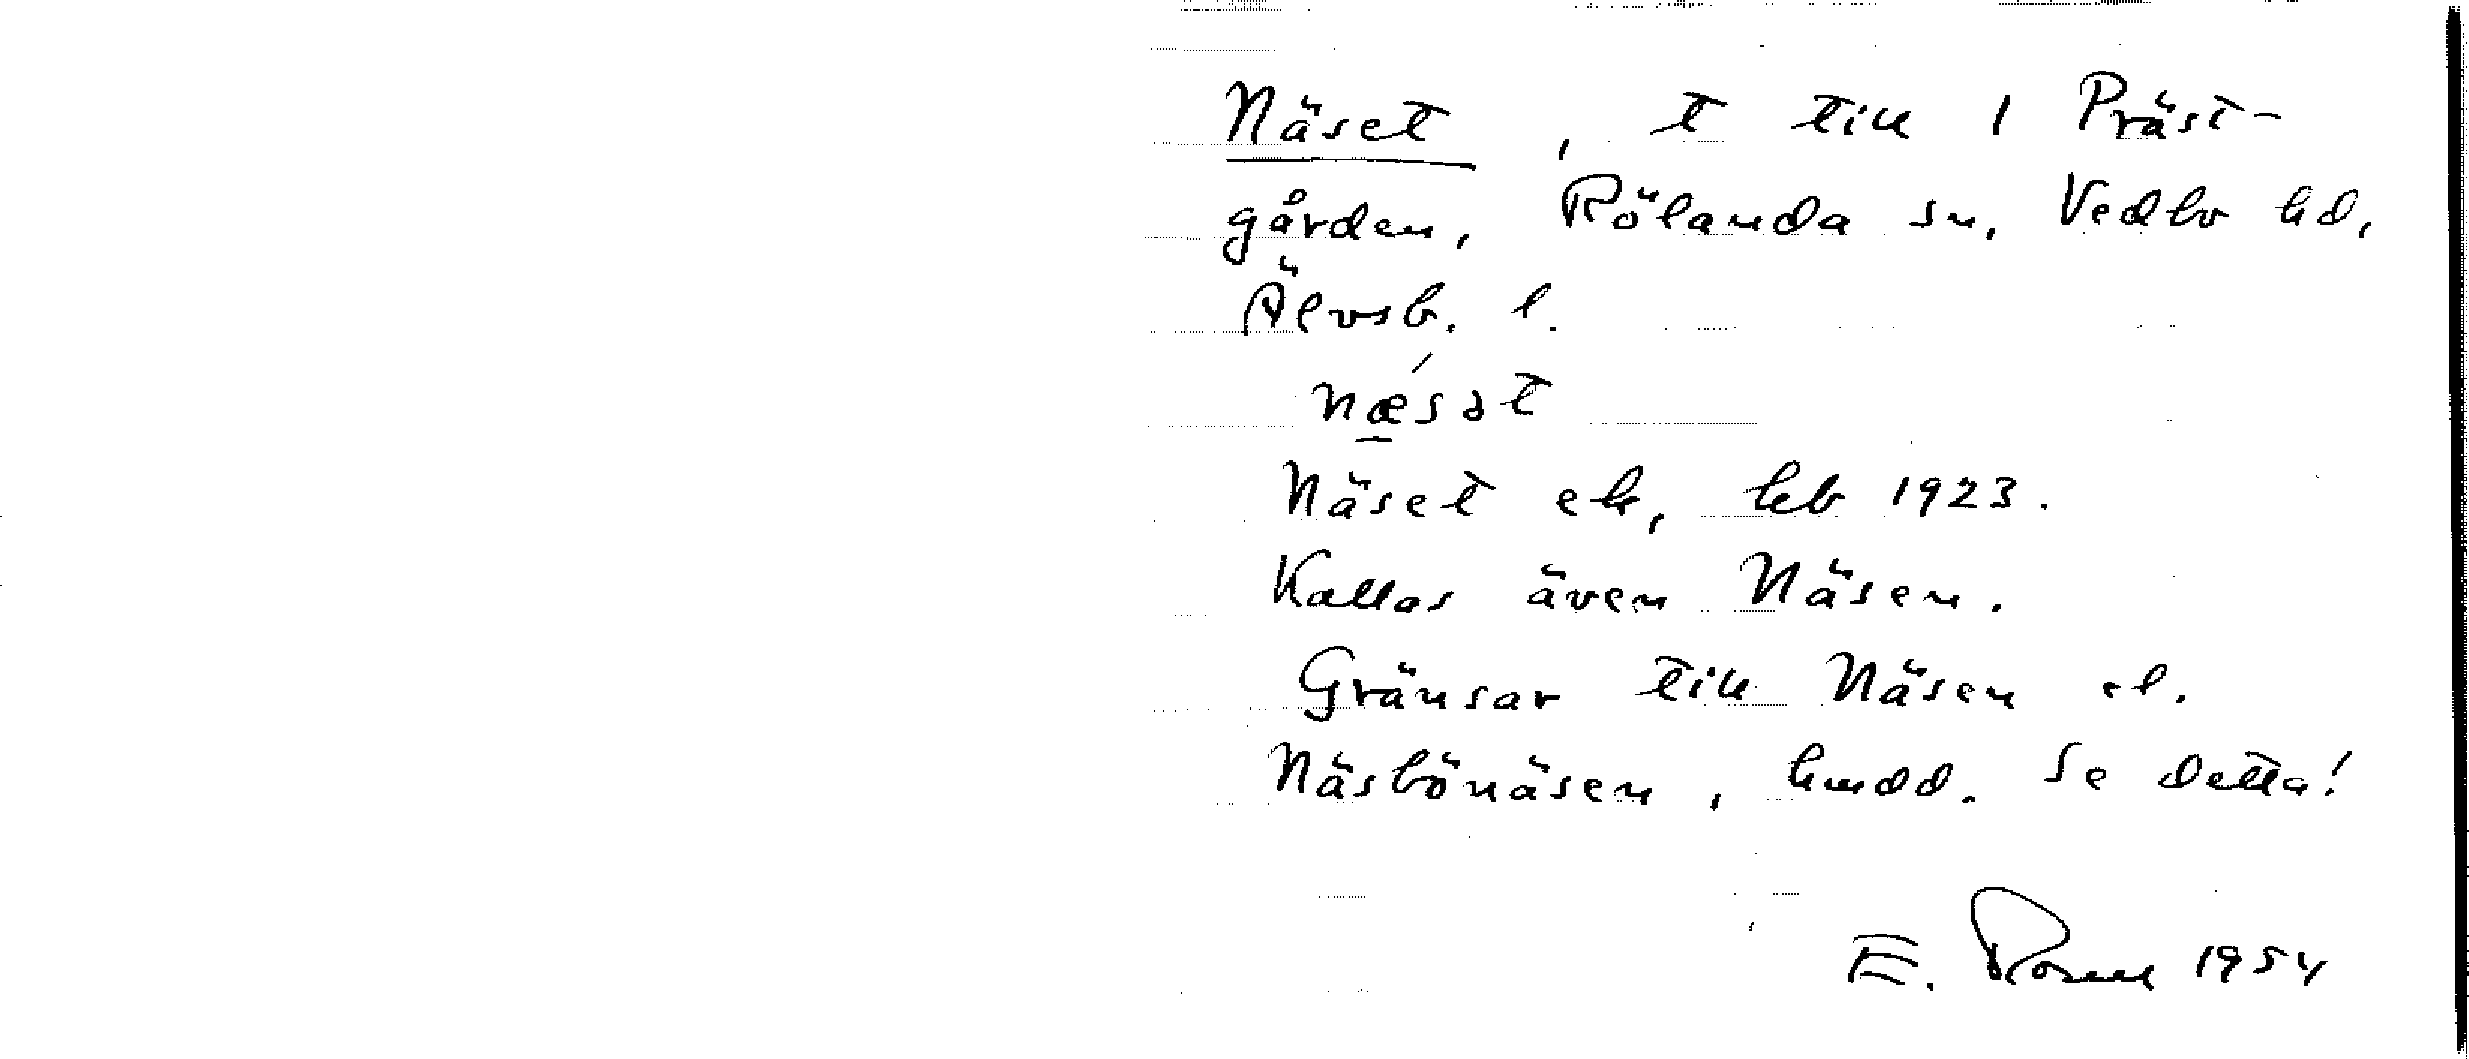 Näset, t till 1 Präst-
gården, Rölanda sn, Vedbo hd,
Älvsb. l.
nǽ̱sət
Näset ek, hfb 1923.
Kallas även Näsen.
Gränsar till Näsen el.
Näsbönäsen, hmdd. Se detta!
E. 1954